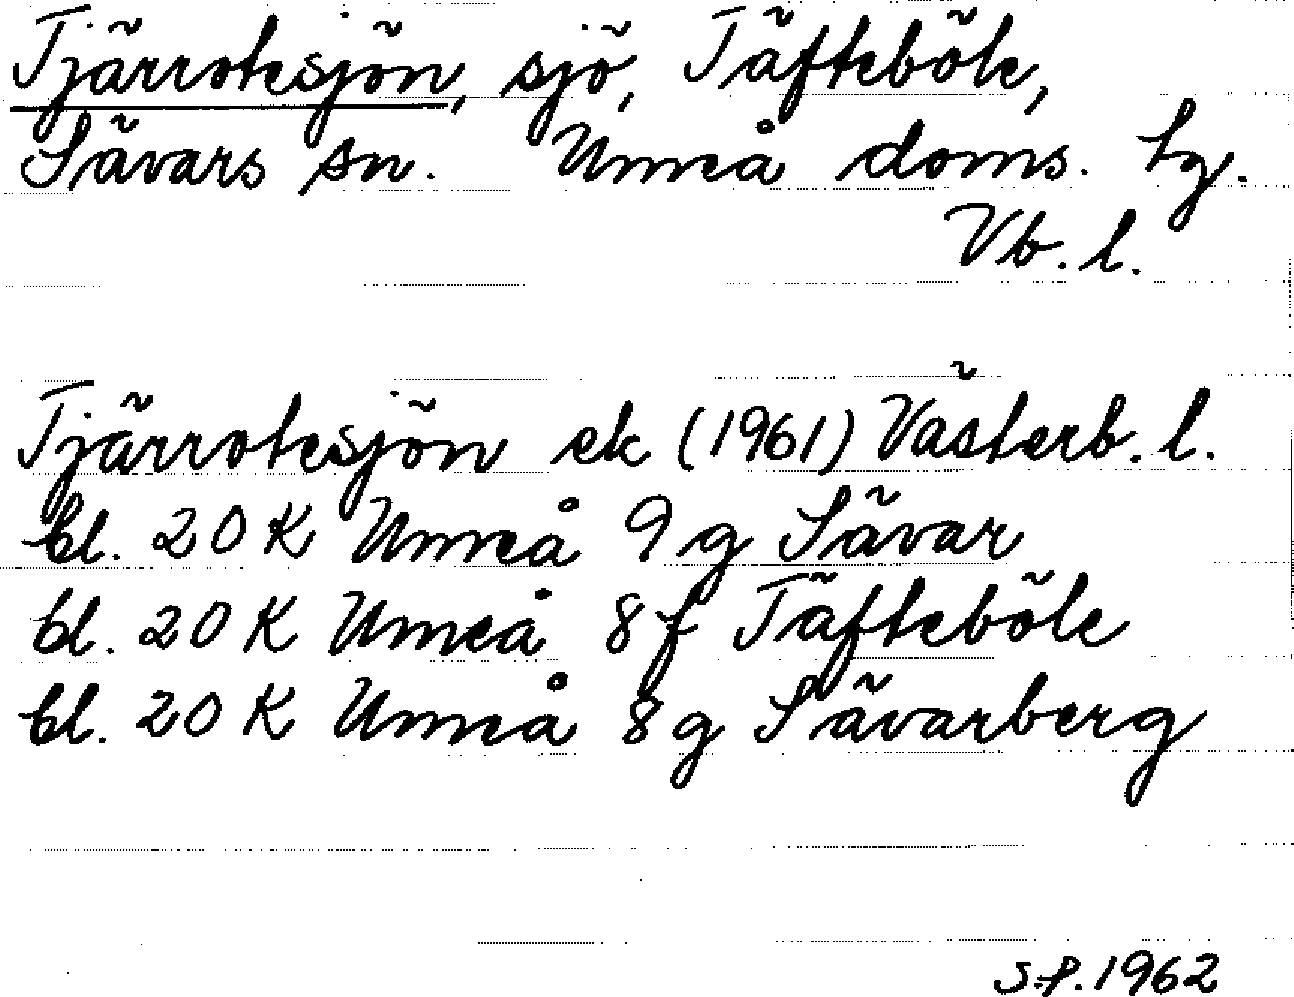 Tjärrotesjön, sjö, Täfteböle,
Sävars sn. Umeå doms. hg.
Vb. l.
Tjärrotesjön ek (1961) Västerb. l.
bl. 20 K Umeå 9 g Sävar
bl. 20 K Umeå 8 f Täfteböle
bl. 20 K Umeå 8 g Sävarberg
S.P. 1962